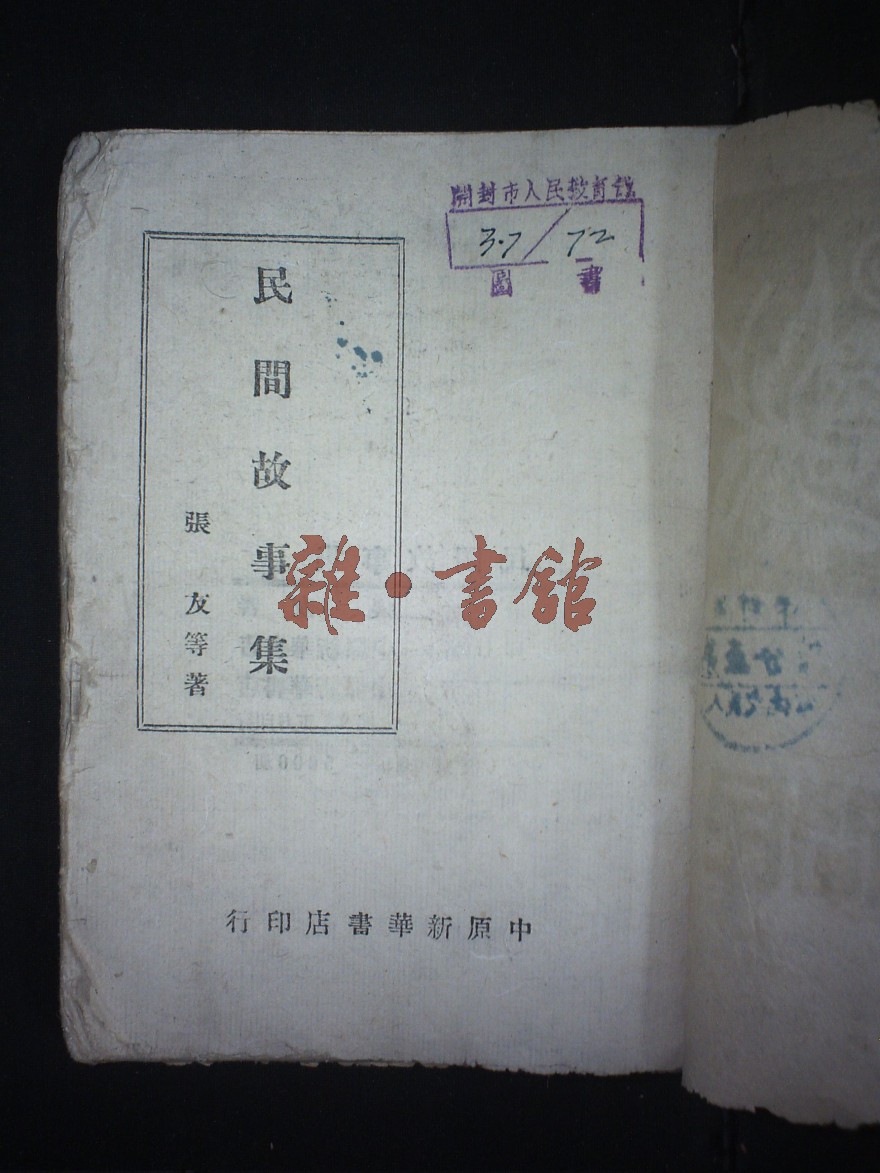 開封市人民教育館
3.7/72
圖書
民間故事集
張友等著
雜·書館
中原新華書店印行